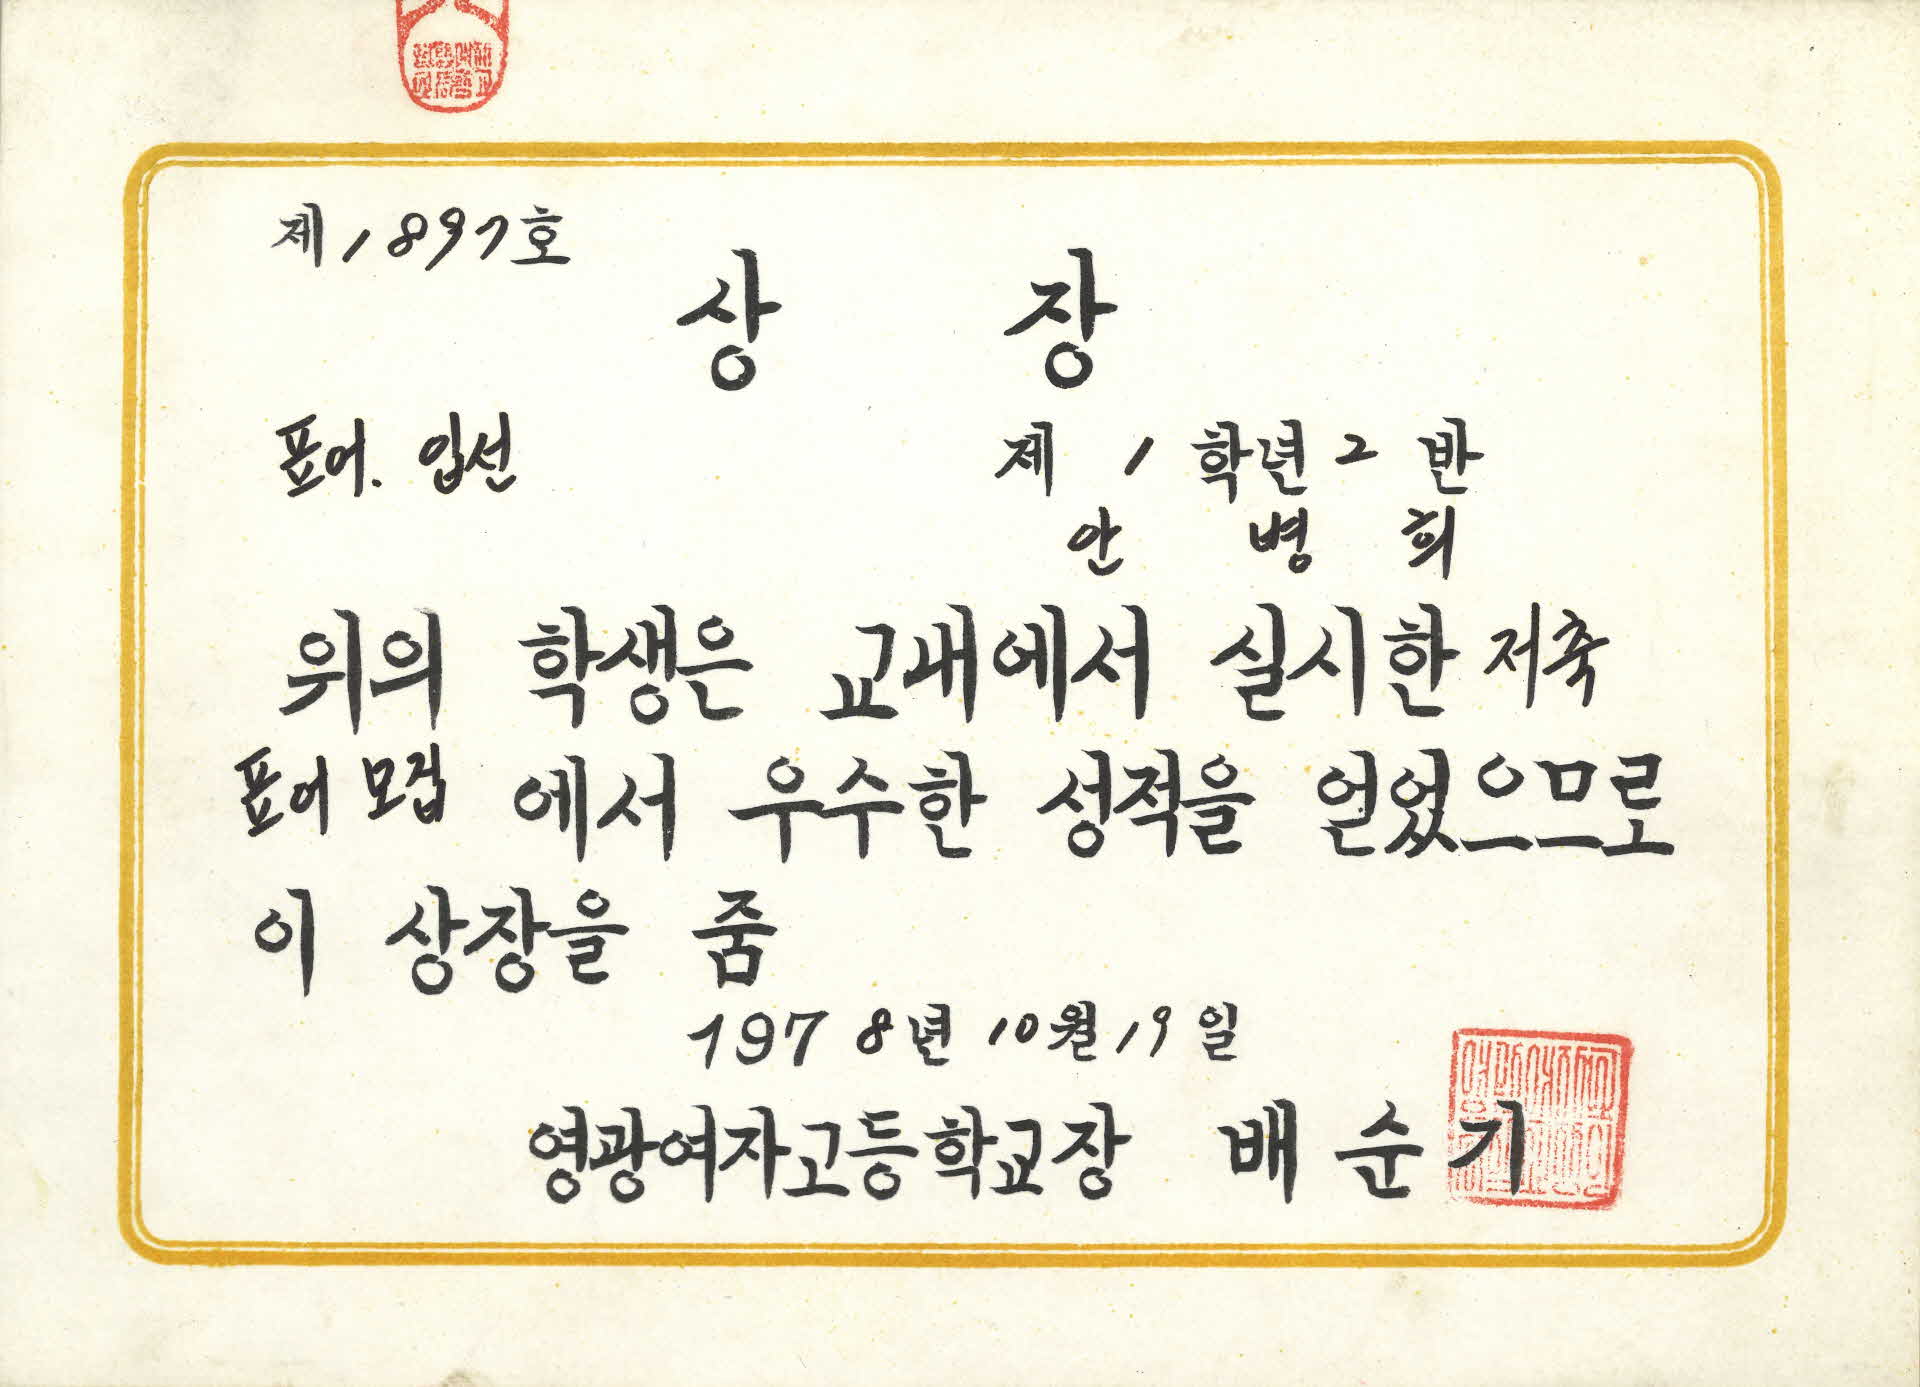 제1897호
상 장
표어. 입선
제 1 학년 2 반
안 병 희
위의 학생은 교내에서 실시한 저축
표어 모집 에서 우수한 성적을 얻었으므로
이 상장을 줌
1978년 10월 19일
영광여자고등학교장 배 순 기